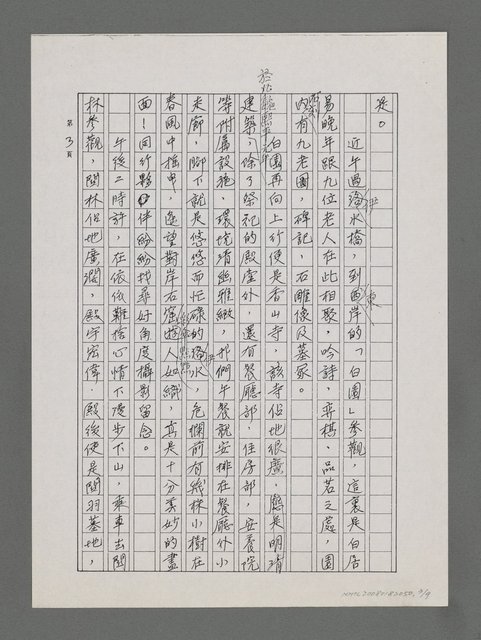 是。
近午過洛水橋，到西岸的「白園」參觀，這裏是白居
易晚年跟九位老人在此相聚，吟詩、弈棋、品茗之處，園
內有九老園，碑記，石雕像及墓冢。
白園再向上行便是香山寺，該寺佔地很廣，應是明清
建築，除了祭祀的殿堂外，還有餐廳部，住房部，安養院
等附屬設施，環境清幽雅緻，我們午餐就安排在餐廳外小
走廊，腳下就是悠悠而忙碌的洛水，危欄前有幾株小樹在
春風中搖曳，遙望對岸石窟遊人如織，真是十分美妙的畫
面！同行夥伴紛紛找尋好角度攝影留念。
午後2時許，在依依難捨心情下漫步下山，乘車去關
林參觀，關林佔地廣濶，殿宇宏偉，殿後便是關羽墓地，
第3頁
伊
東
NMTL20080182050, 3/9